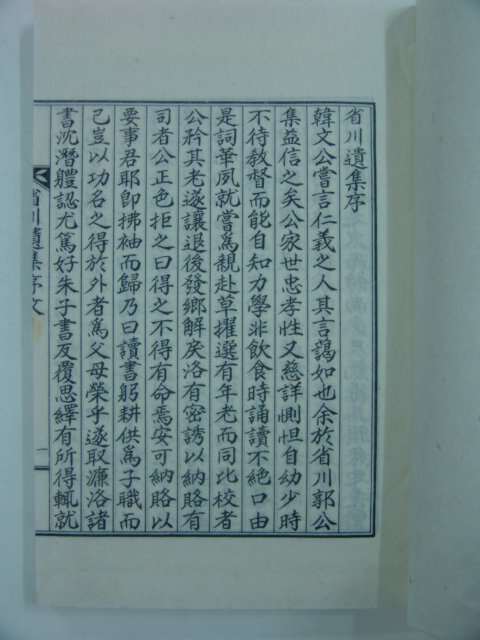 省川遺集序
韓文公嘗言仁義之人其言藹如也余於省川郭公
集益信之矣公家世忠孝性又慈詳惻怛自幼少時
不待敎督而能自知力學非飮食時誦讀不絶口由
是詞華夙就嘗爲親赴草擢選有年老而同比校者
公矜其老遂讓退後發鄕解戾洛有密誘以納賂有
司者公正色拒之曰得之不得有命焉安可納賂以
要事君耶卽拂袖而歸乃曰讀書躬耕供爲子職而
已豈以功名之得於外者爲父母榮乎遂取濂洛諸
書沈潛軆認尤篤好朱子書反覆思繹有所得輒就
省川遺集序文
一